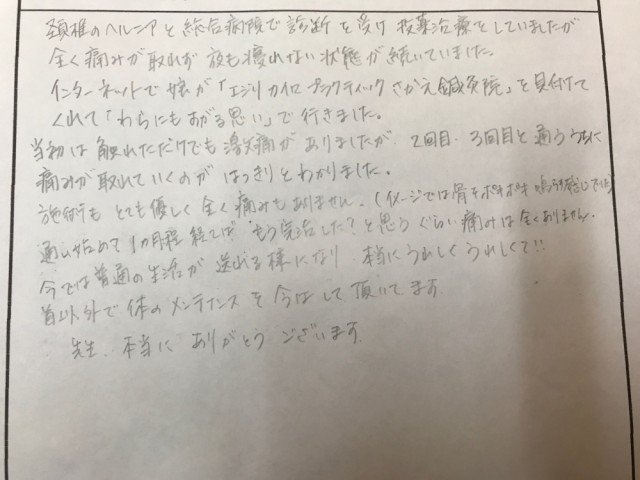 頚椎のヘルニアと総合病院で診断を受け 投薬治療をしていましたが
全く痛みが取れず 夜も寝れない状態が続いていました。
インターネットで嫁が「エジリカイロプラクティック さかえ鍼灸院」を見付けて
くれて「わらにもあがる思い」で行きました。
当初は触れただけでも激痛がありましたが、2回目、3回目と通ううちに
痛みが取れていくのがはっきりとわかりました。
施術も とても優しく全く痛みもありません。(イメージでは骨をボキボキ鳴らす感じでした)
通い始めて1ヵ月程経てば "もう完治した?"と思うぐらい痛みは全くありません。
今では普通の生活が送れる様になり 本当にうれしくうれしくて!!
首以外で体のメンテナンスを今はして頂いてます
先生、本当に ありがとう ございます。